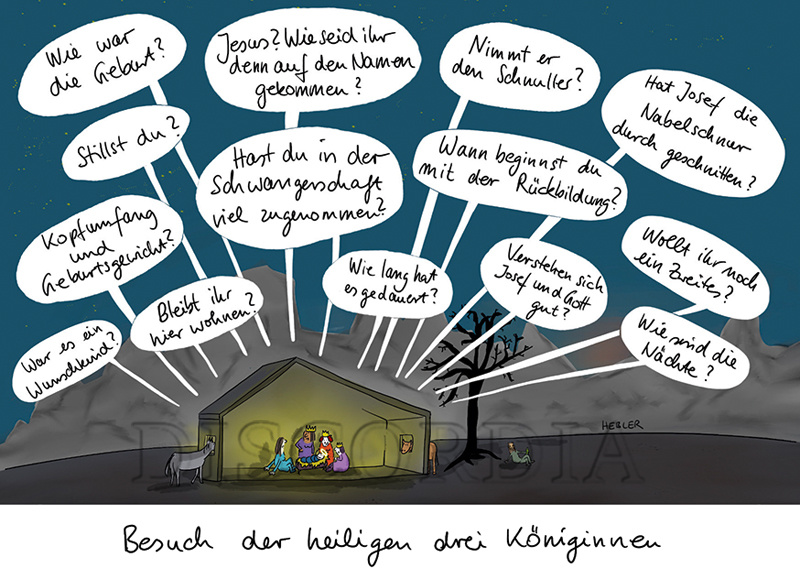 Wie war
die Geburt?
Jesus? Wie seid ihr
denn auf den Namen
gekommen?
Nimmt er
den Schnuller?
Hat Josef die
Nabelschnur
durchgeschnitten?
Stillst du?
Hast du in der
Schwangerschaft
viel zugenommen?
Wann beginnst du
mit der Rückbildung?
Kopfumfang
und
Geburtsgewicht?
Bleibt ihr
hier wohnen?
Wie lang hat
es gedauert?
Verstehen sich
Josef und Gott
gut?
Wollt ihr noch
ein Zweites?
War es ein
Wunschkind?
Wie sind die
Nächte?
HEBLER
DISCORDIA
Besuch der heiligen drei Königinnen